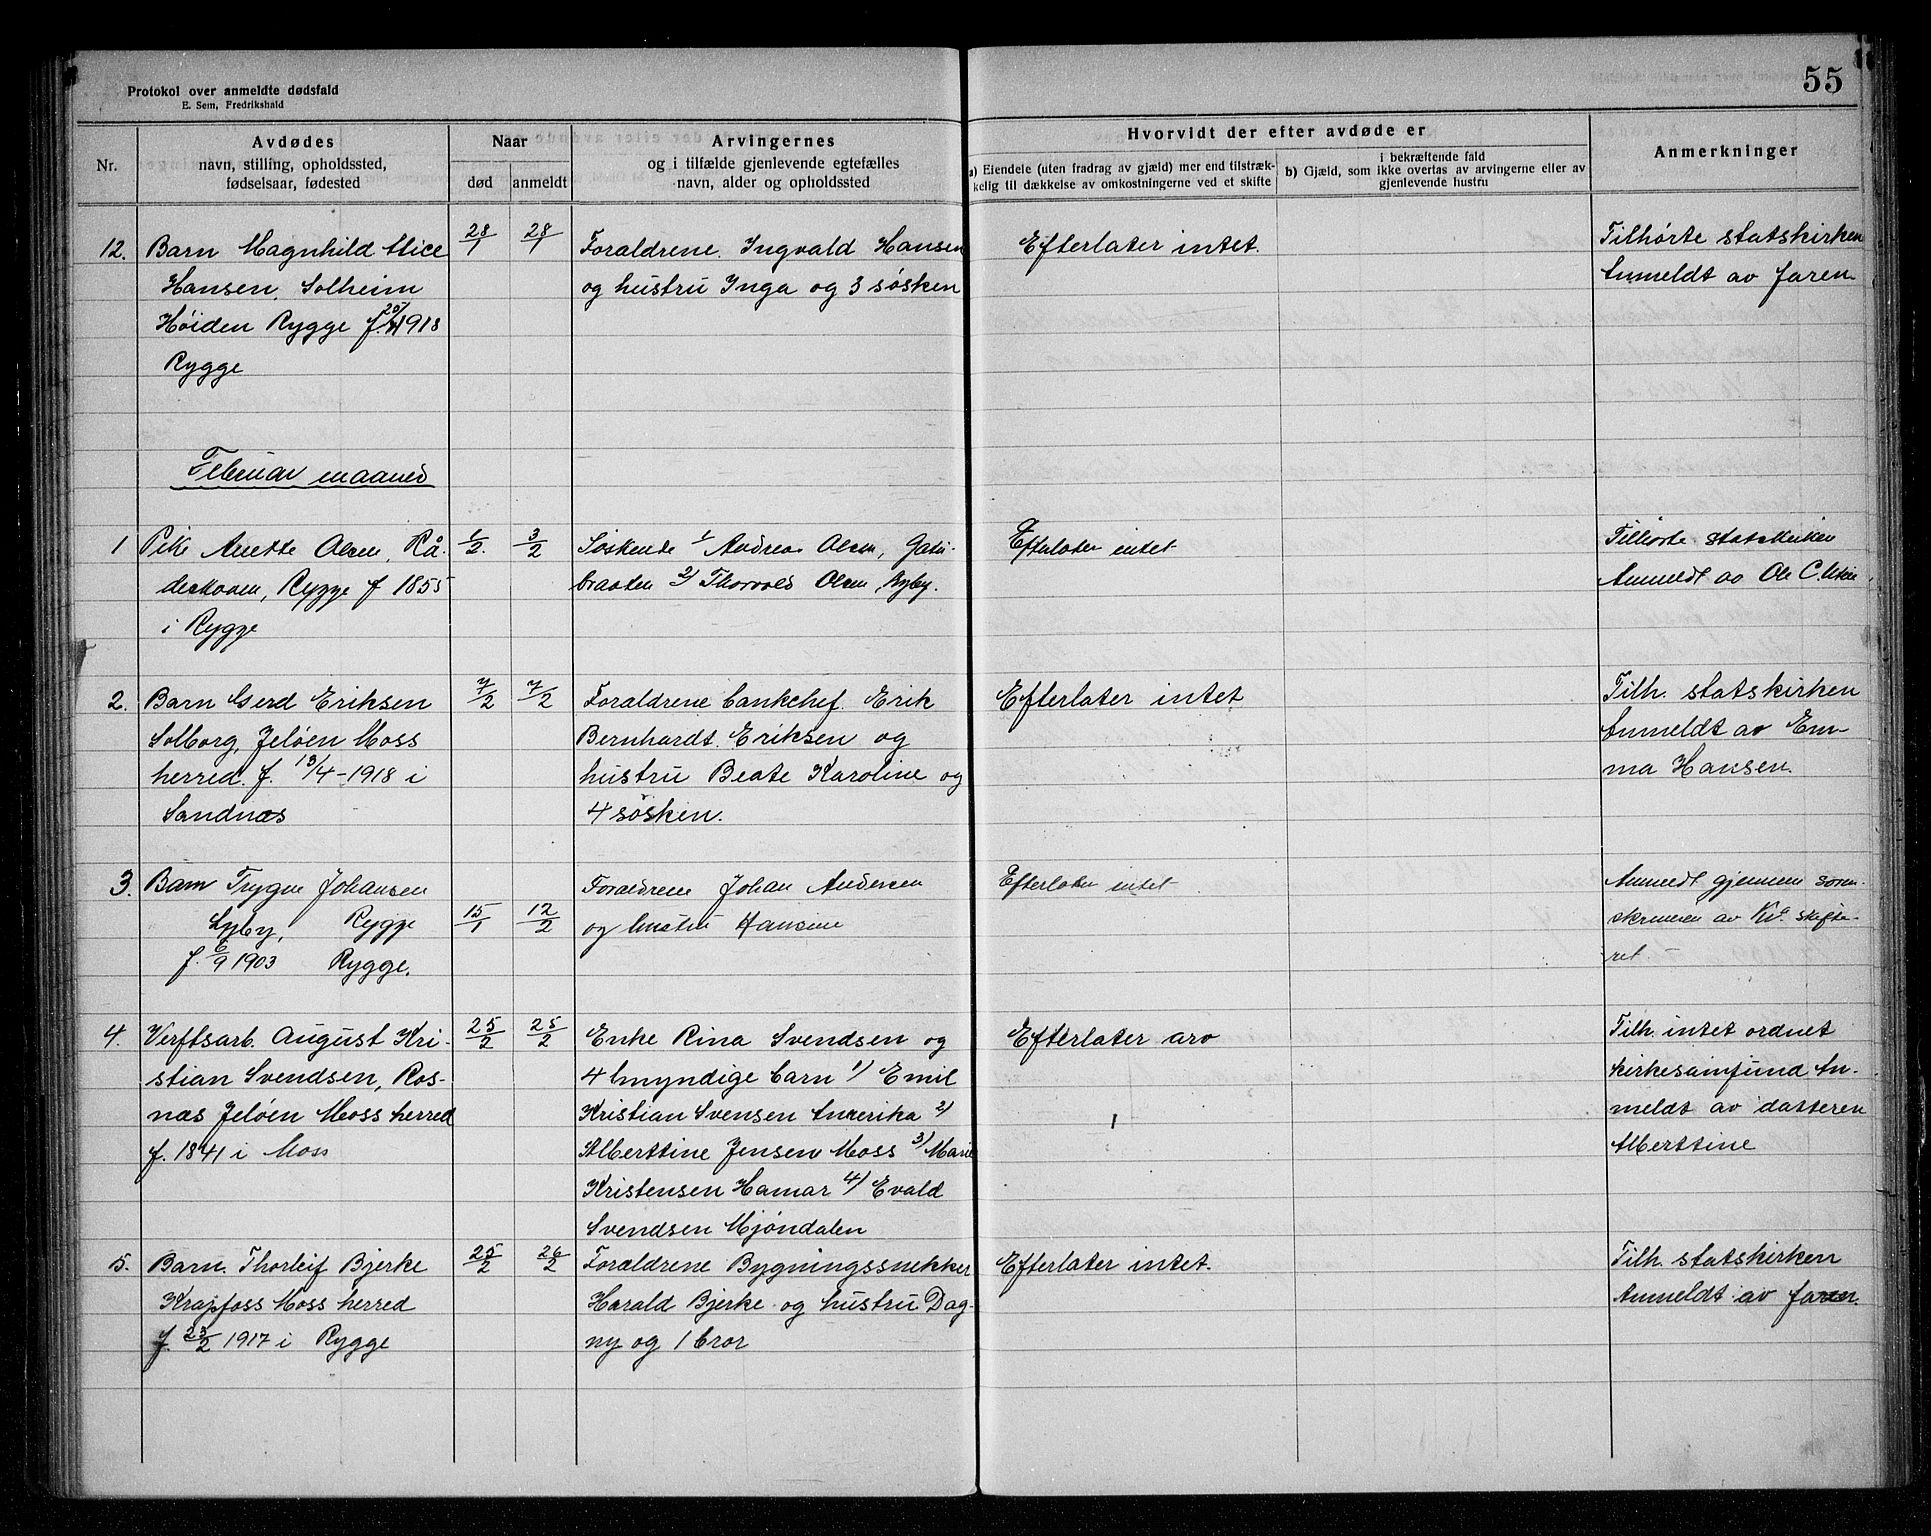 55
Protokol over anmeldte dødsfald
E. Sem, Fredrikshald
Nr.
Avdødes
navn, stilling, opholdssted,
fødselsaar, fødested
Naar
død
anmeldt
Arvingernes
og i tilfælde gjenlevende egtefælles
navn, alder og opholdssted
Hvorvidt der efter avdøde er
a) Eiendele (uten fradrag av gjæld) mer end tilstræk-
kelig til dækkelse av omkostningerne ved et skifte
i bekræftende fald
b) Gjæld, som ikke overtas av arvingerne eller av
gjenlevende hustru
Anmerkninger
12.
Barn Magnhild Alice
Hansen, Solheim
Høiden Rygge f. 1918
Rygge
28/1
28/1
Foraldrene. Ingvald Hansen
og hustru Inga og 3 søsken
Efterlater intet.
Tilhørte statskirken
Anmeldt av faren
Februar maaned
1
Pike Anette Olsen, Rå-
deskoven, Rygge f 1855
i Rygge
1/2.
3/2
Søskende 1/ Andreas Olsen,
braaten 2/ Thorvald Olsen, Ryby.
Efterlater intet
Tilhørte statskirken
Anmeldt av Ole C.
2.
Barn Gerd Eriksen
Solborg, Jeløen Moss
herred. f. 13/4-1918 i
Sandnæs
7/2
7/2
Foraldrene bankchef. Erik
Bernhardt. Eriksen og
hustru Beate Karoline og
4 søsken.
Efterlater intet
Tilh. statskirken
Anmeldt av Em-
ma Hansen.
3.
Barn Trygve Johansen
Rygge
f. 6/9 1903 Rygge.
15/1
12/2
Foraldrene Johan Andersen
og hustru Hansine
Efterlater intet
Anmeldt gjennem soren-
skriveren av Kr.a skifte-
ret
4.
Verftsarb. August Kri-
stian Svendsen, Ros-
næs Jeløen Moss herred
f. 1841 i Moss
25/2
25/2
Enke Rina Svendsen og
4 myndige barn 1) Emil
Kristian Svensen Amerika 2)
Alberttine Jensen Moss 3) Marie
Kristensen Hamar 4) Evald
Svendsen Mjøndalen
Efterlater arv
Tilh. intet ordnet
kirkesamfund An-
meldt av datteren
Alberttine
5.
Barn. Thorleif Bjerke
Krapfoss Moss herred
f. 23/2 1917 i Rygge
25/2
26/2
Foraldrene Bygningssnekker
Harald Bjerke og hustru Dag-
ny og 1 bror
Efterlater intet.
Tilh. statskirken
Anmeldt av faren.